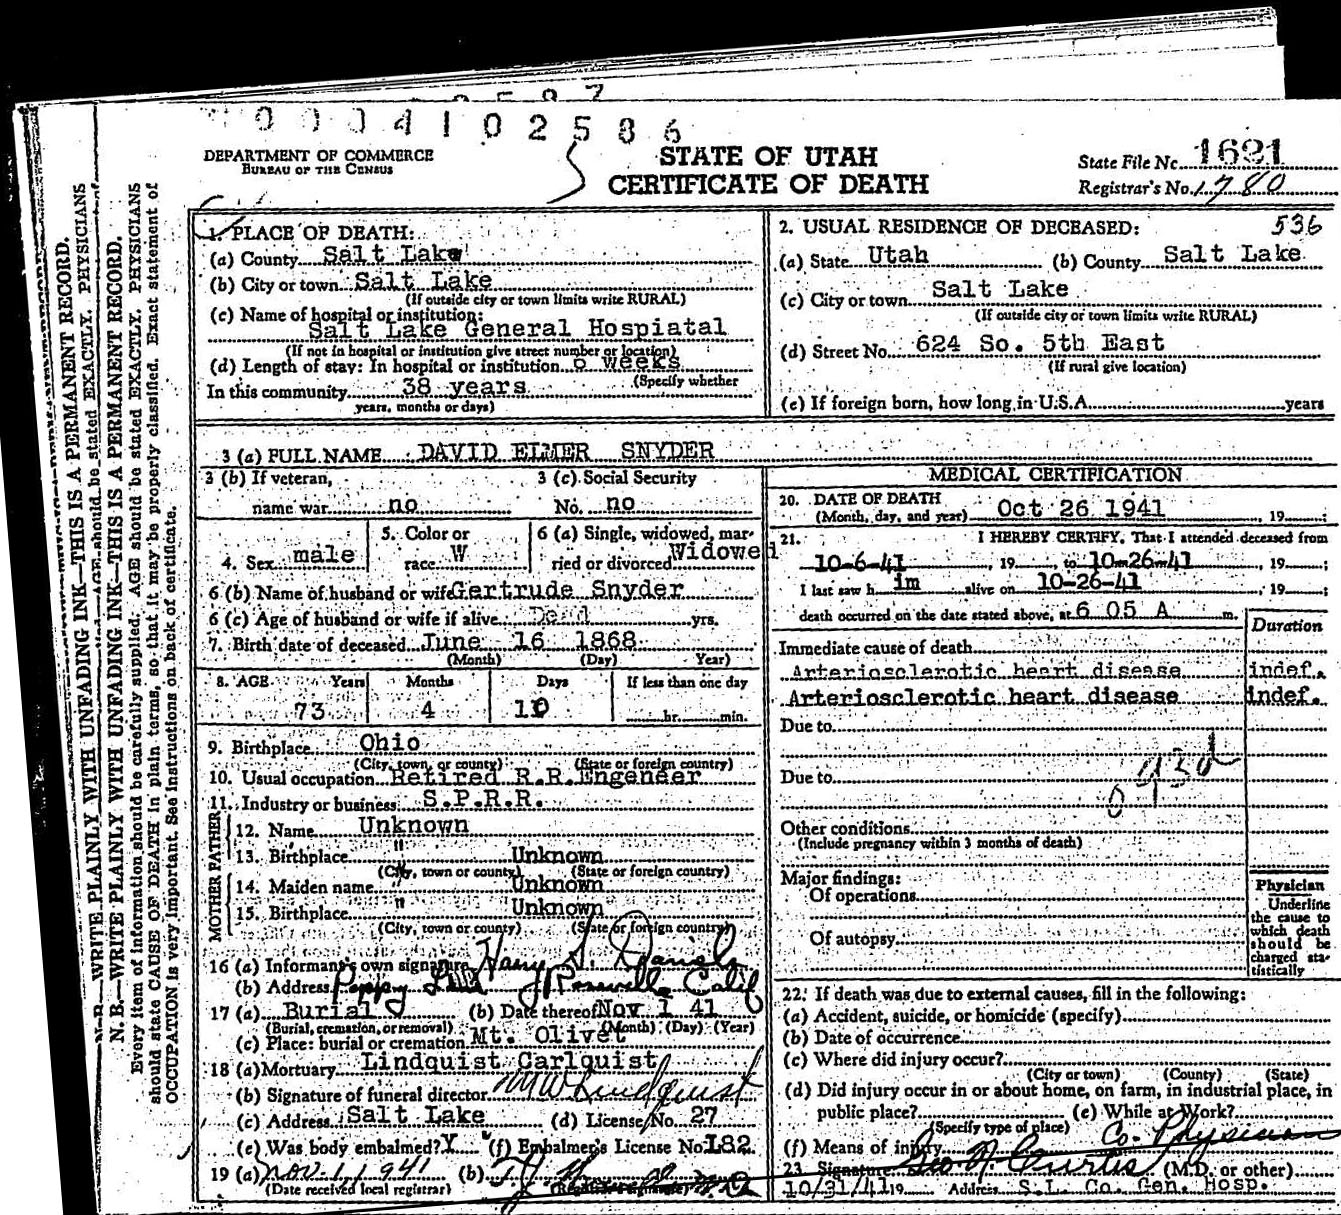 0004102586
DEPARTMENT OF COMMERCE
BUREAU OF THE CENSUS
STATE OF UTAH
CERTIFICATE OF DEATH
State File No. 1621
Registrar's No. 1780
1. PLACE OF DEATH:
(a) County Salt Lake
(b) City or town Salt Lake
(If outside city or town limits write RURAL)
(c) Name of hospital or institution:
Salt Lake General Hospiatal
(If not in hospital or institution give street number or location)
(d) Length of stay: In hospital or institution weeks
(Specify whether
In this community 38 years
years, months or days)
2. USUAL RESIDENCE OF DECEASED: 536
(a) State Utah (b) County Salt Lake
(c) City or town Salt Lake
(If outside city or town limits write RURAL)
(d) Street No. 624 So. 5th East
(If rural give location)
(e) If foreign born, how long in U.S.A. years
3 (a) FULL NAME DAVID ELMER SNYDER
3 (b) If veteran, 3 (c) Social Security
name war no No. no
4. Sex male 5. Color or race W 6 (a) Single, widowed, married or divorced Widowed
6 (b) Name of husband or wife Gertrude Snyder
6 (c) Age of husband or wife if alive Dead yrs.
7. Birth date of deceased June 16 1868
(Month) (Day) Year)
8. AGE Years Months Days If less than one day
73 4 10 hr. min.
9. Birthplace Ohio
(City, town, or county) (State or foreign country)
10. Usual occupation Retired R.R.Engeneer
11. Industry or business S.P.R.R.
FATHER
12. Name Unknown
13. Birthplace " Unknown
(City, town or county) (State or foreign country)
MOTHER
14. Maiden name " Unknown
15. Birthplace " Unknown
(City, town or county) (State or foreign country)
16 (a) Informant's own signature Harry S. Daniels
(b) Address Roseville Calif
17 (a) Burial (b) Date thereof Nov 1 41
(Burial, cremation, or removal) (Month) (Day) (Year)
(c) Place: burial or cremation Mt. Olivet
18 (a) Mortuary Lindquist Carlquist
(b) Signature of funeral director M W Lindquist
(c) Address Salt Lake (d) License No. 27
(e) Was body embalmed? Y (f) Embalmer's License No. 182
19 (a) NOV 1 1941 (b)
(Date received local registrar) (Registrar's signature)
MEDICAL CERTIFICATION
20. DATE OF DEATH
(Month, day, and year) Oct 26 1941, 19 ;
21. I HEREBY CERTIFY, That I attended deceased from
10-6-41, 19 , to 10-26-41, 19 ;
I last saw h im alive on 10-26-41, 19 ;
death occurred on the date stated above, at 6 05 A m.
Duration
Immediate cause of death
Arteriosclerotic heart disease indef.
Arteriosclerotic heart disease indef.
Due to
Due to
093d
Other conditions
(Include pregnancy within 3 months of death)
Major findings:
Of operations
Of autopsy
Physician
Underline
the cause to
which death
should be
charged sta-
tistically
22. If death was due to external causes, fill in the following:
(a) Accident, suicide, or homicide (specify)
(b) Date of occurrence
(c) Where did injury occur?
(City or town) (County) (State)
(d) Did injury occur in or about home, on farm, in industrial place, in
public place? (e) While at Work?
(Specify type of place)
(f) Means of injury Co. Physician
23 Signature Geo N. Curtis (M.D. or other)
10/31/41 19 Address S.L. Co. Gen. Hosp.
N. B.—WRITE PLAINLY WITH UNFADING INK—THIS IS A PERMANENT RECORD.
N. B.—WRITE PLAINLY WITH UNFADING INK—THIS IS A PERMANENT RECORD.
Every item of information should be carefully supplied. AGE should be stated EXACTLY. PHYSICIANS
should state CAUSE OF DEATH in plain terms, so that it may be properly classified. Exact statement of
OCCUPATION is very important. See instructions on back of certificate.